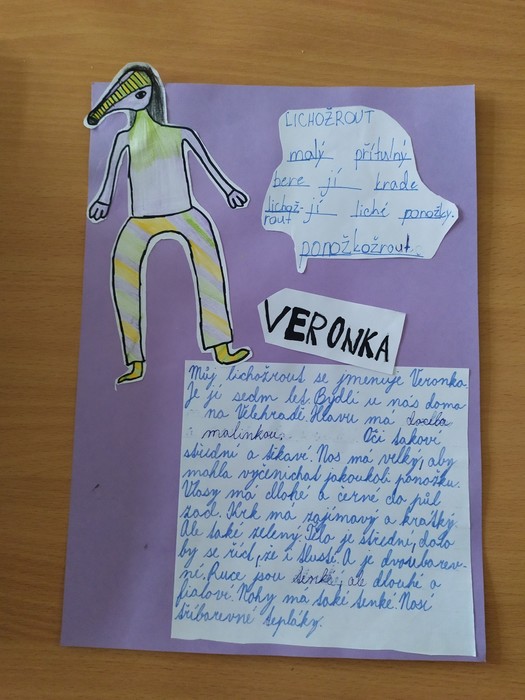 LICHOŽROUT
malý přítulný
bere jí krade
lichož-
rout jí liché ponožky.
ponožkožrout.
VERONKA
Můj lichožrout se jmenuje Veronka.
Je jí sedm let. Bydlí u nás doma
na Velehradě. Hlavu má docela
malinkou. Oči takové
střední a těkavé. Nos má velký, aby
mohla vyčenichat jakoukoli ponožku.
Vlasy má dlohé a černé do půl
zad. Krk má zajímavý a kratký.
Ale také zelený. Tělo je střední, dalo
by se říct, že i tlusté. A je dvoubarev-
né. Ruce jsou tenké, ale dlouhé a
fialové. Nohy má také tenké. Nosí
tříbarevné tepláky.